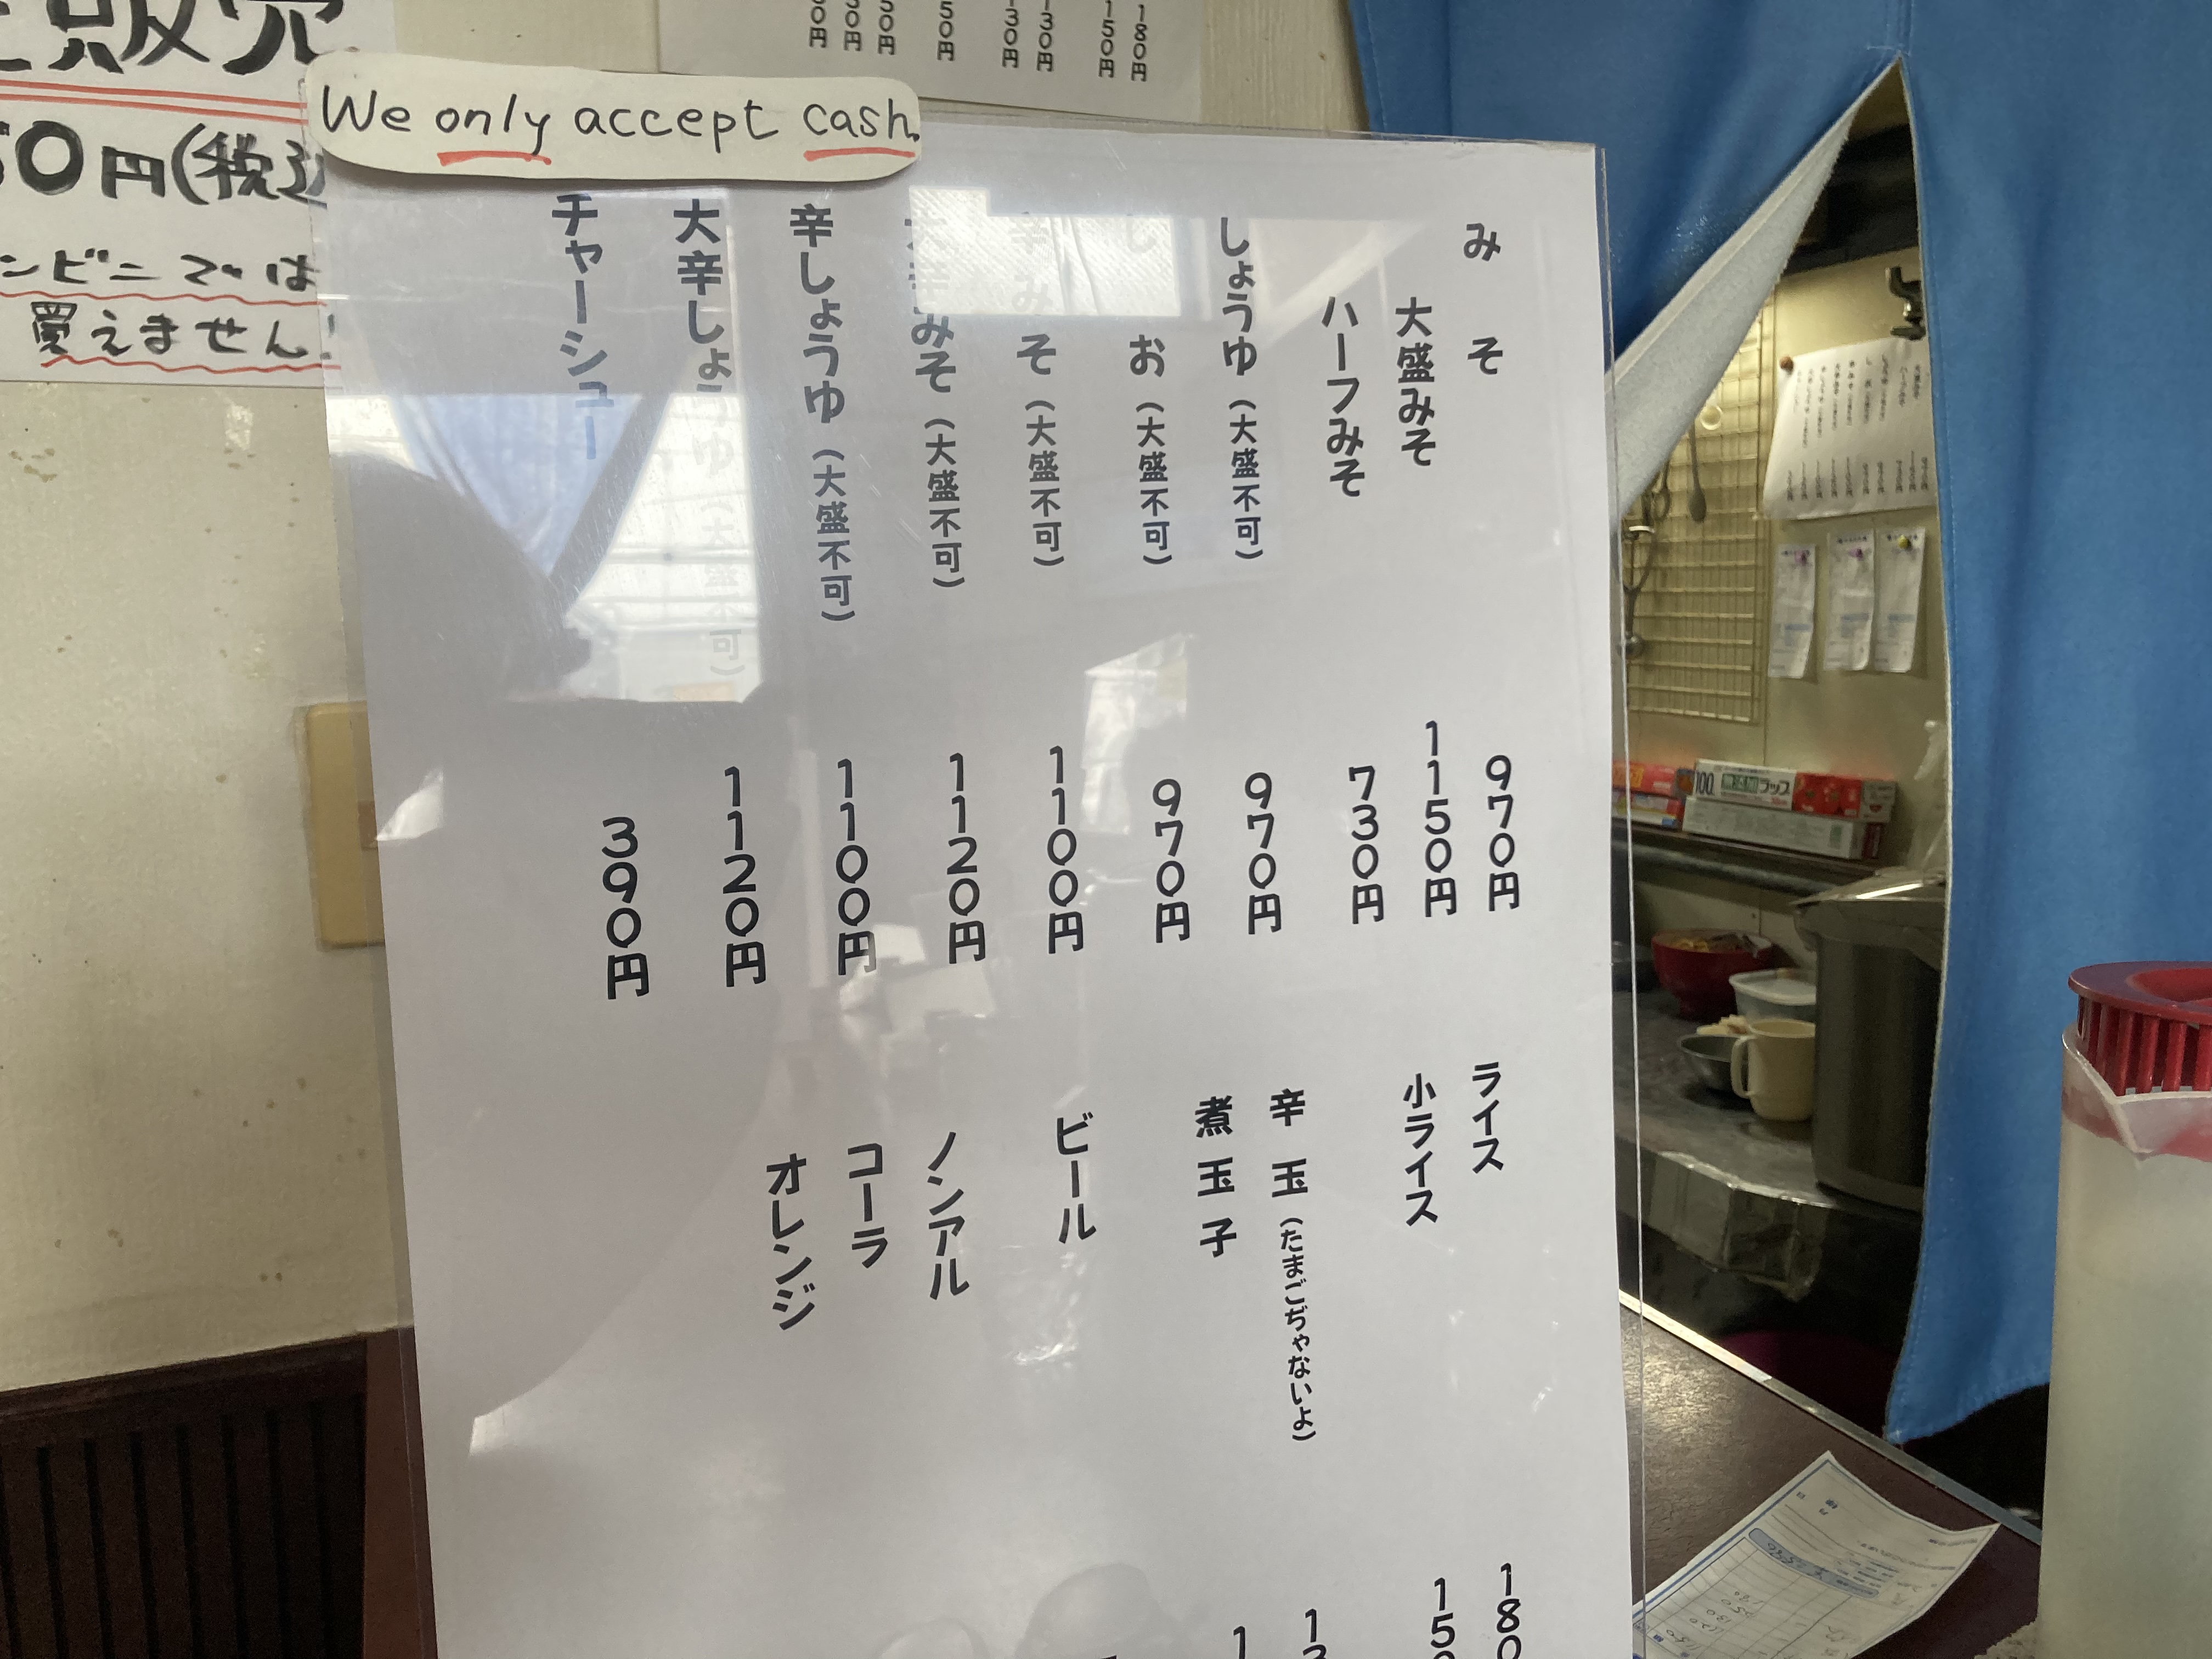 We only accept cash.
みそ 970円
大盛みそ 1150円
ハーフみそ 730円
しょうゆ（大盛不可） 970円
しお（大盛不可） 970円
辛みそ（大盛不可） 1100円
大辛みそ（大盛不可） 1120円
辛しょうゆ（大盛不可） 1100円
大辛しょうゆ（大盛不可） 1120円
チャーシュー 390円
ライス 180
小ライス 150
辛玉（たまごぢゃないよ） 13
煮玉子 1
ビール
ノンアル
コーラ
オレンジ
180円
150円
130円
130円
50円
50円
50円
販売
50円(税込
ンビニでは
買えません!
100
ラップ